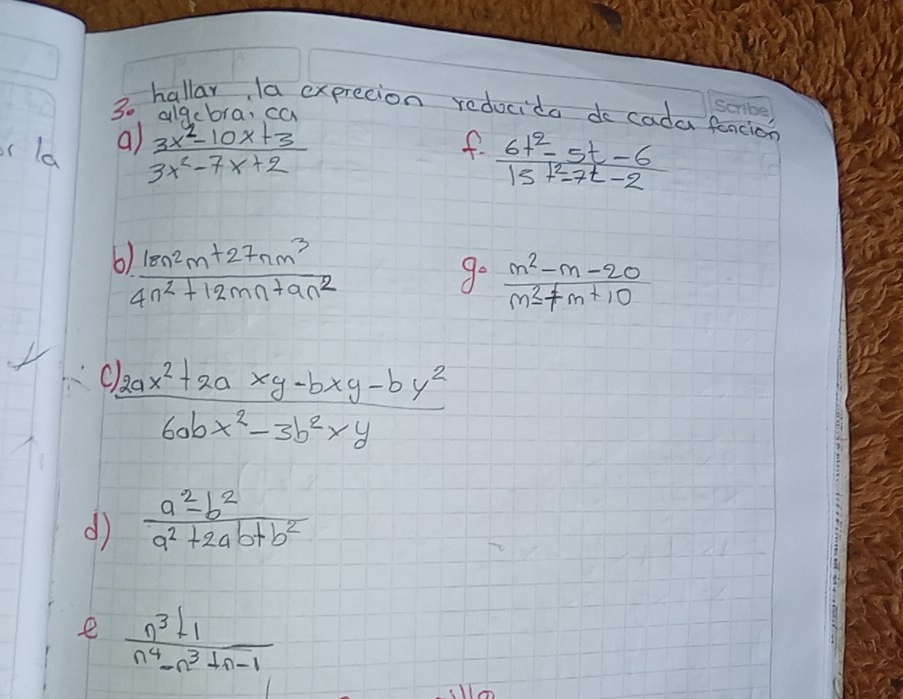 Scribe
3. hallar la exprecion reducida de cada foncion
algebraica
a) 3x²-10x+3
3x²-7x+2
f. 6t²-5t-6
15t²-7t-2
b) 18n²m+27nm³
4n²+12mn+9n²
g. m²-m-20
m²-7m+10
c) 2ax²+2a xy-bxy-by²
6abx²-3b²xy
d) a²-b²
a²+2ab+b²
e n³+1
n⁴-n³+n-1